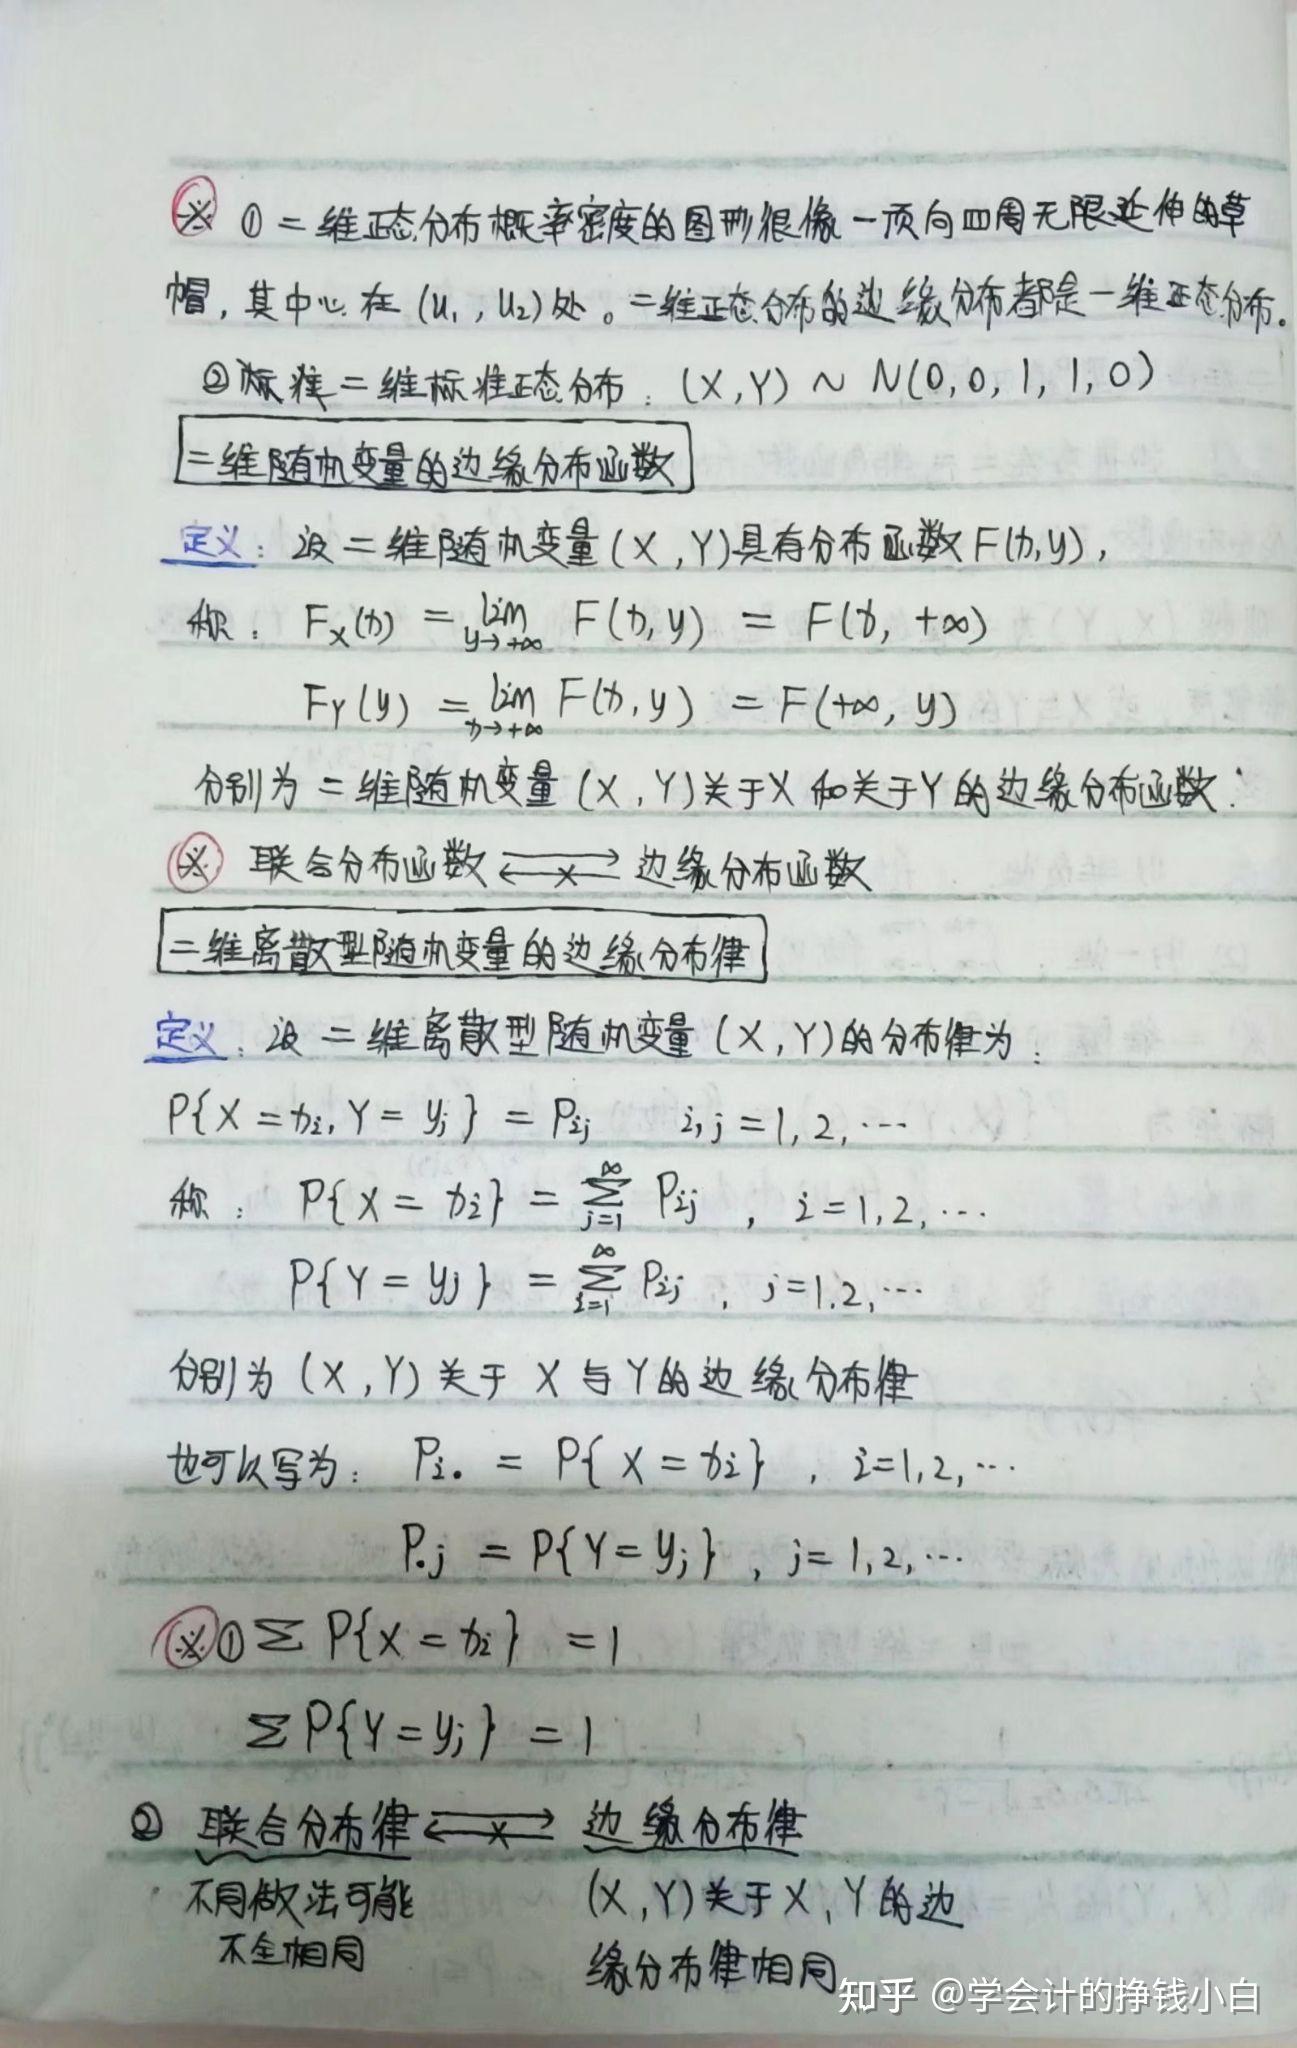 ※ ① 二维正态分布概率密度的图形很像一顶向四周无限延伸的草
帽，其中心在(u₁, u₂)处。二维正态分布的边缘分布都是一维正态分布。
②标准二维标准正态分布：(X,Y) ~ N(0,0,1,1,0)
二维随机变量的边缘分布函数
定义：设二维随机变量(X,Y)具有分布函数F(x,y)，
称：F_X(x) = lim_{y→+∞} F(x,y) = F(x,+∞)
F_Y(y) = lim_{x→+∞} F(x,y) = F(+∞, y)
分别为二维随机变量(X,Y)关于X和关于Y的边缘分布函数：
※ 联合分布函数 ⇄(×) 边缘分布函数
二维离散型随机变量的边缘分布律
定义：设二维离散型随机变量(X,Y)的分布律为：
P{X=x_i, Y=y_j} = P_ij i,j=1,2,…
称：P{X=x_i} = ∑_{j=1}^{∞} P_ij , i=1,2,…
P{Y=y_j} = ∑_{i=1}^{∞} P_ij , j=1,2,…
分别为(X,Y)关于X与Y的边缘分布律
也可以写为：P_i. = P{X=x_i} , i=1,2,…
P.j = P{Y=y_j} , j=1,2,…
※ ① ∑P{X=x_i} =1
∑P{Y=y_j} =1
② 联合分布律 ⇄(×) 边缘分布律
不同做法可能 (X,Y)关于X,Y的边
不全相同 缘分布律相同
知乎 @学会计的挣钱小白